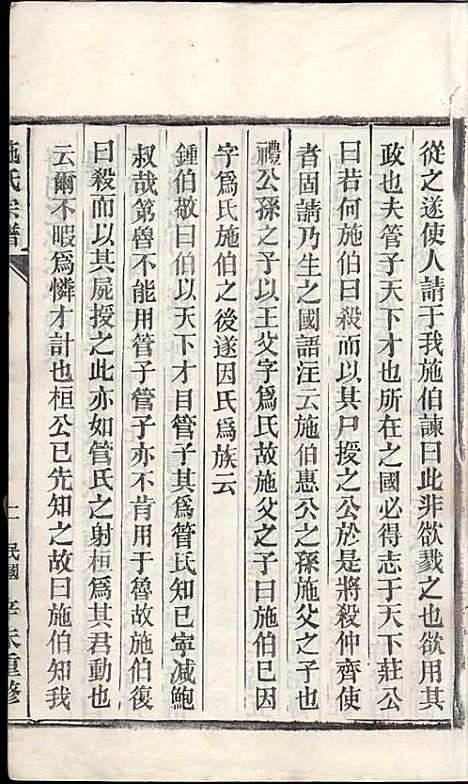 從之遂使人請于我施伯諫曰此非欲戮之也欲用其
政也夫管子天下才也所在之國必得志于天下莊公
曰若何施伯曰殺而以其尸授之公於是將殺仲齊使
者固請乃生之國語注云施伯惠公之孫施父之子也
禮公孫之子以王父字爲氏故施父之子曰施伯巳因
字爲氏施伯之後遂因氏爲族云
鍾伯敬曰伯以天下才目管子其爲管氏知已寧减鮑
叔哉第魯不能用管子管子亦不肯用于魯故施伯復
曰殺而以其屍授之此亦如管氏之射桓爲其君動也
云爾不暇爲憐才計也桓公已先知之故曰施伯知我
施氏宗譜
二 民國 辛未重修